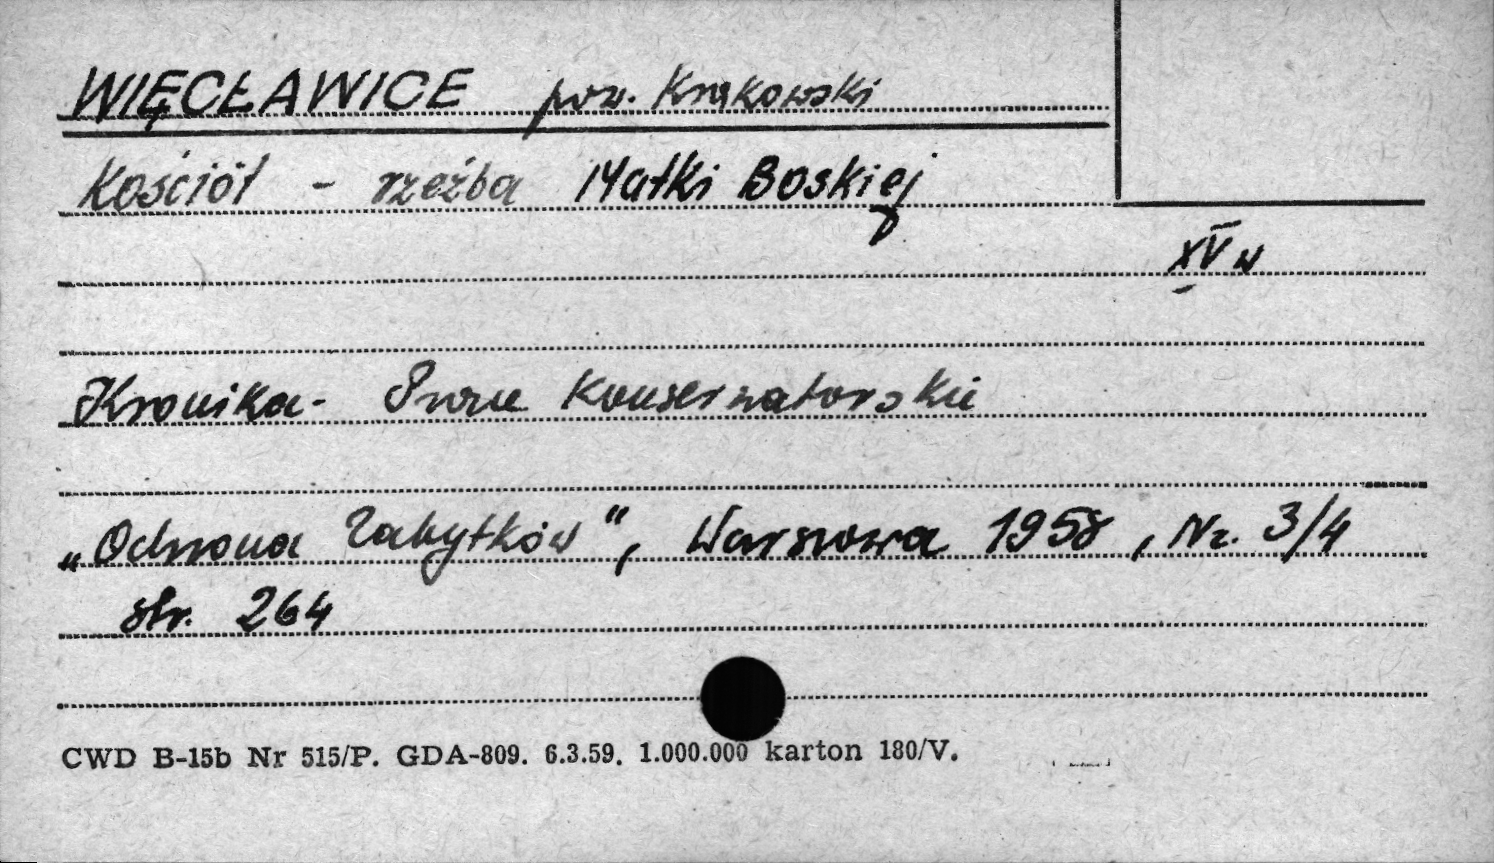 WIĘCŁAWICE pow. Krakowski
Kościół - rzeźba Matki Boskiej
XV w
Kronika - Prace Konserwatorskie
„Ochrona Zabytków", Warszawa 1958, Nr. 3/4
str. 264
CWD B-15b Nr 515/P. GDA-809. 6.3.59. 1.000.000 karton 180/V.